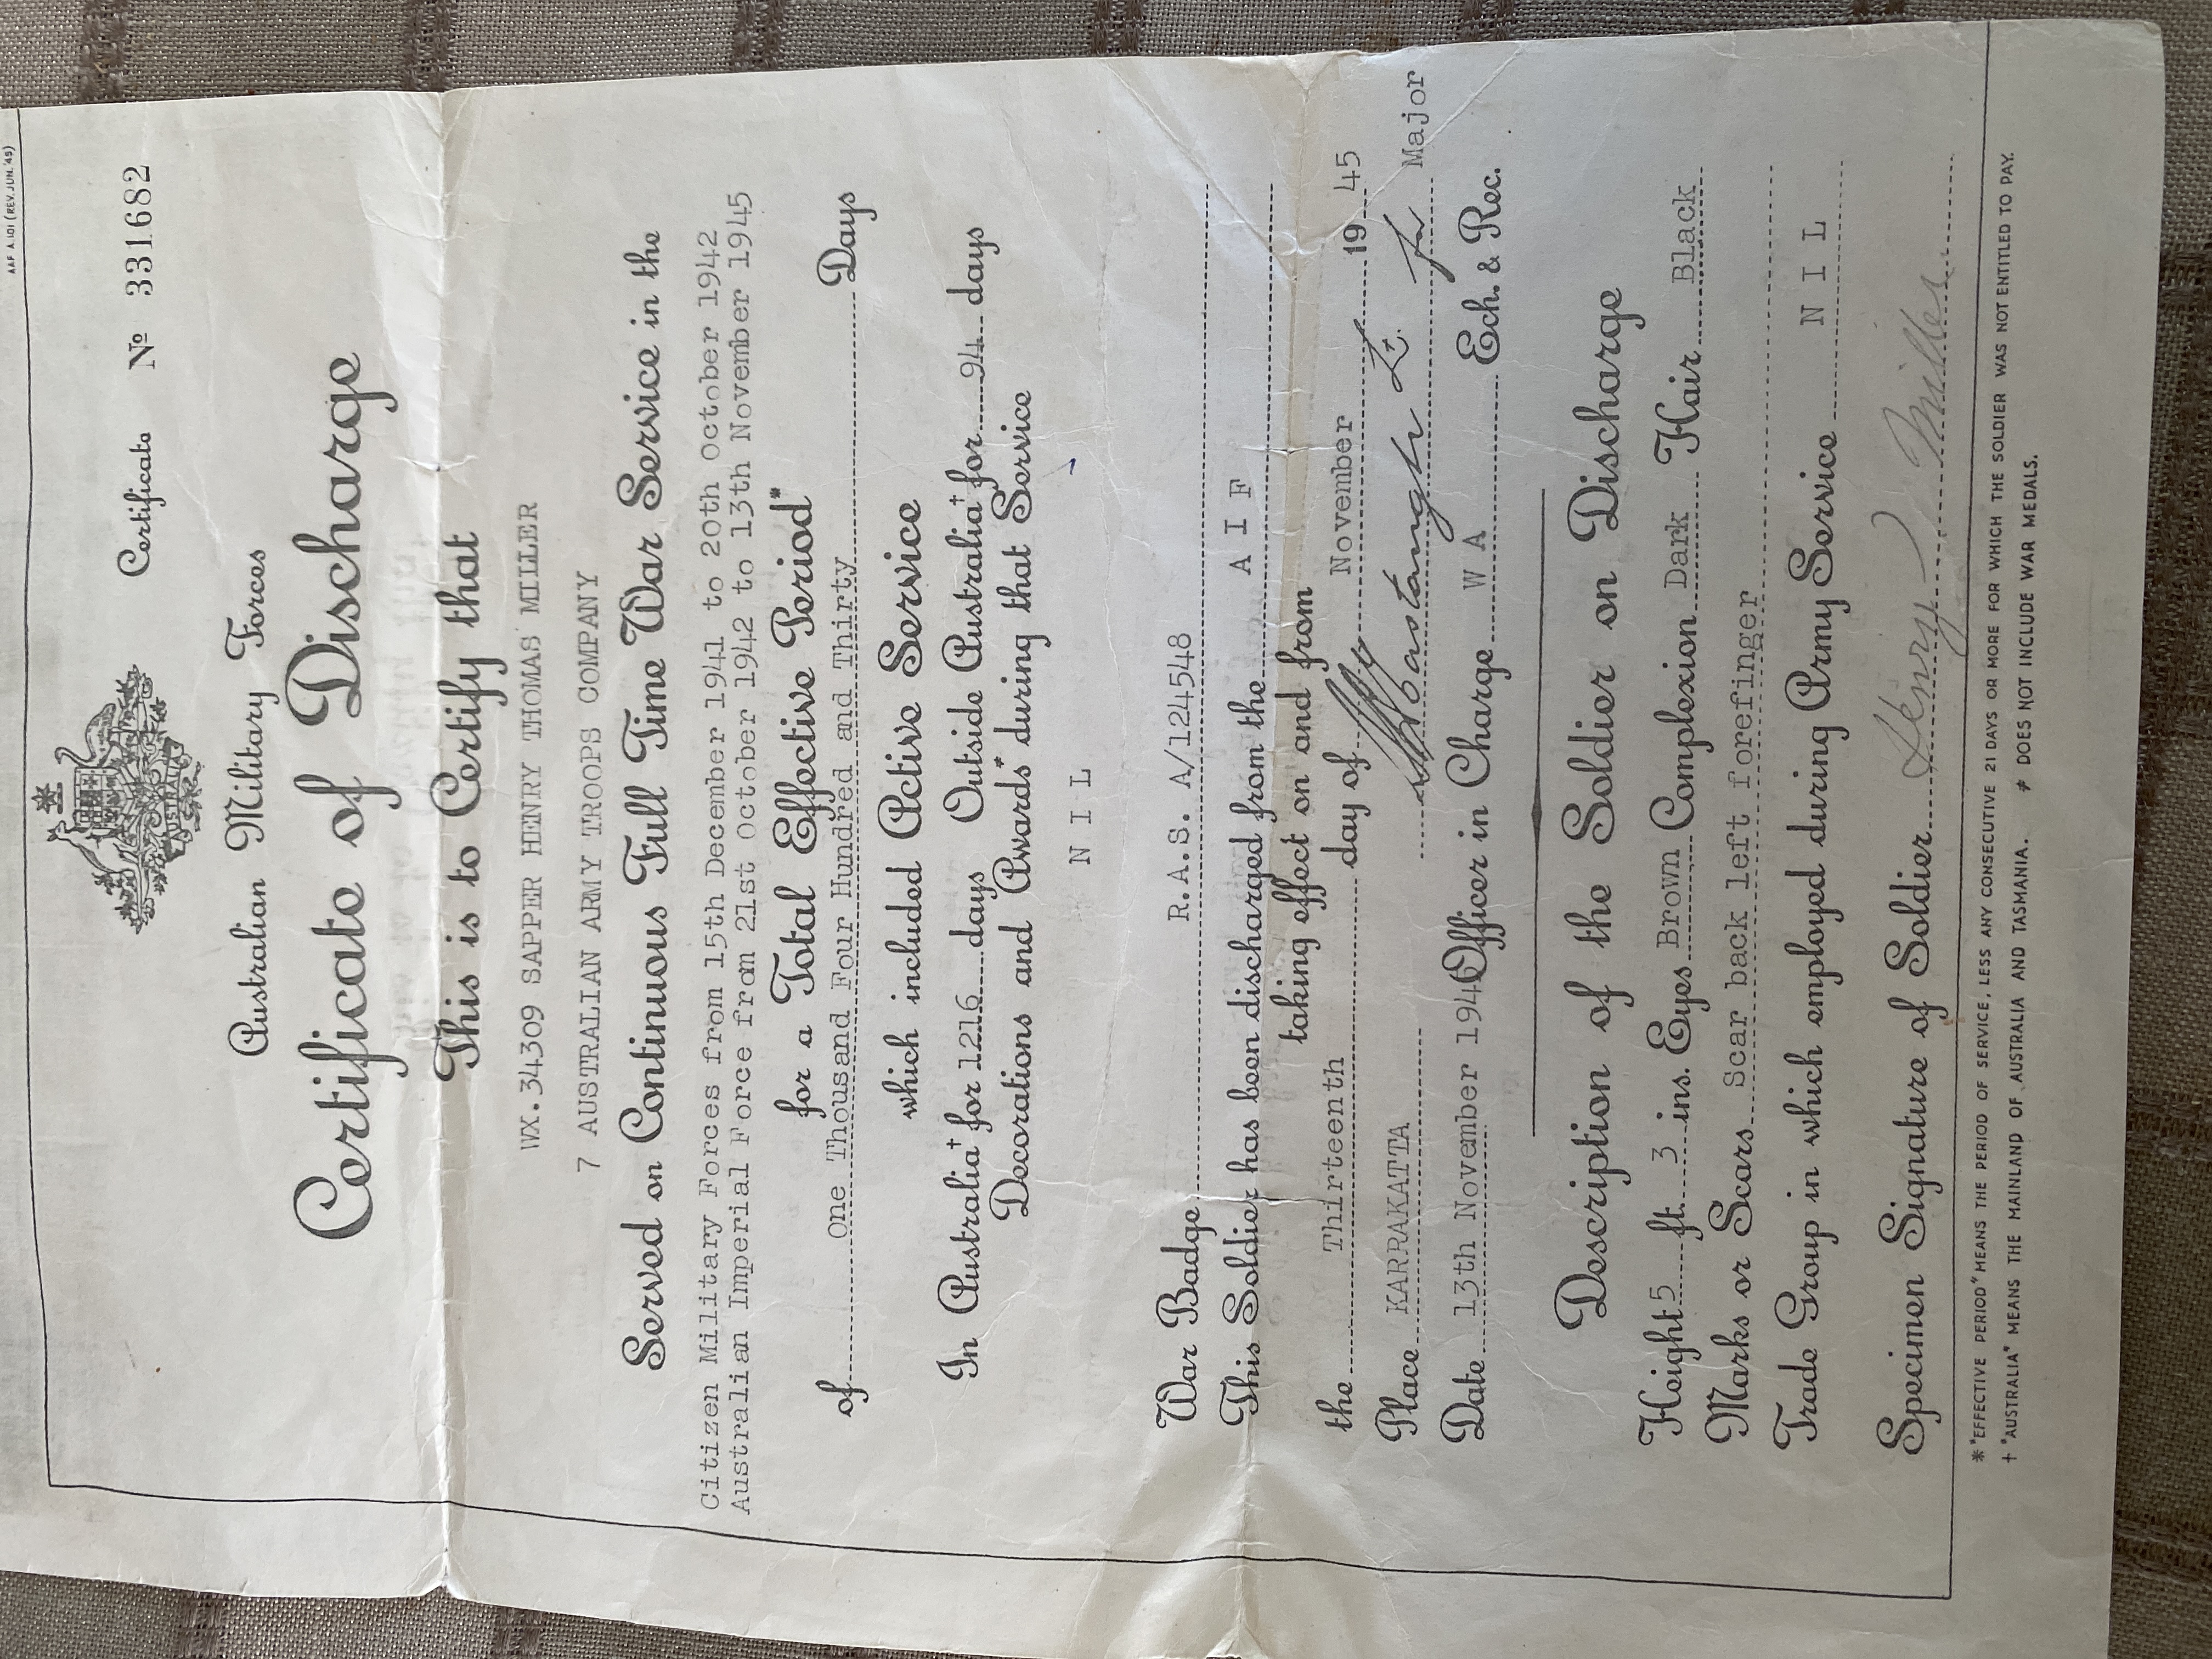 AAF A.101 (REV. JUN. '45)
Certificate Nº 331682
AUSTRALIA
Australian Military Forces
Certificate of Discharge
This is to Certify that
WX.34309 SAPPER HENRY THOMAS MILLER
7 AUSTRALIAN ARMY TROOPS COMPANY
Served on Continuous Full Time War Service in the
Citizen Military Forces from 15th December 1941 to 20th October 1942
Australian Imperial Force from 21st October 1942 to 13th November 1945
for a Total Effective Period*
of One Thousand Four Hundred and Thirty Days
which included Active Service
In Australia† for 1216 days Outside Australia† for 94 days
Decorations and Awards≠ during that Service
N I L
War Badge R.A.S. A/124548
This Soldier has been discharged from the A I F
taking effect on and from
the Thirteenth day of November 19 45
Place KARRAKATTA Lt. for Major
Date 13th November 194 Officer in Charge W A Ech. & Rec.
Description of the Soldier on Discharge
Height 5 ft. 3 ins. Eyes Brown Complexion Dark Hair Black
Marks or Scars Scar back left forefinger
Trade Group in which employed during Army Service N I L
Specimen Signature of Soldier Henry Miller
* "EFFECTIVE PERIOD" MEANS THE PERIOD OF SERVICE, LESS ANY CONSECUTIVE 21 DAYS OR MORE FOR WHICH THE SOLDIER WAS NOT ENTITLED TO PAY.
† "AUSTRALIA" MEANS THE MAINLAND OF AUSTRALIA AND TASMANIA. ≠ DOES NOT INCLUDE WAR MEDALS.